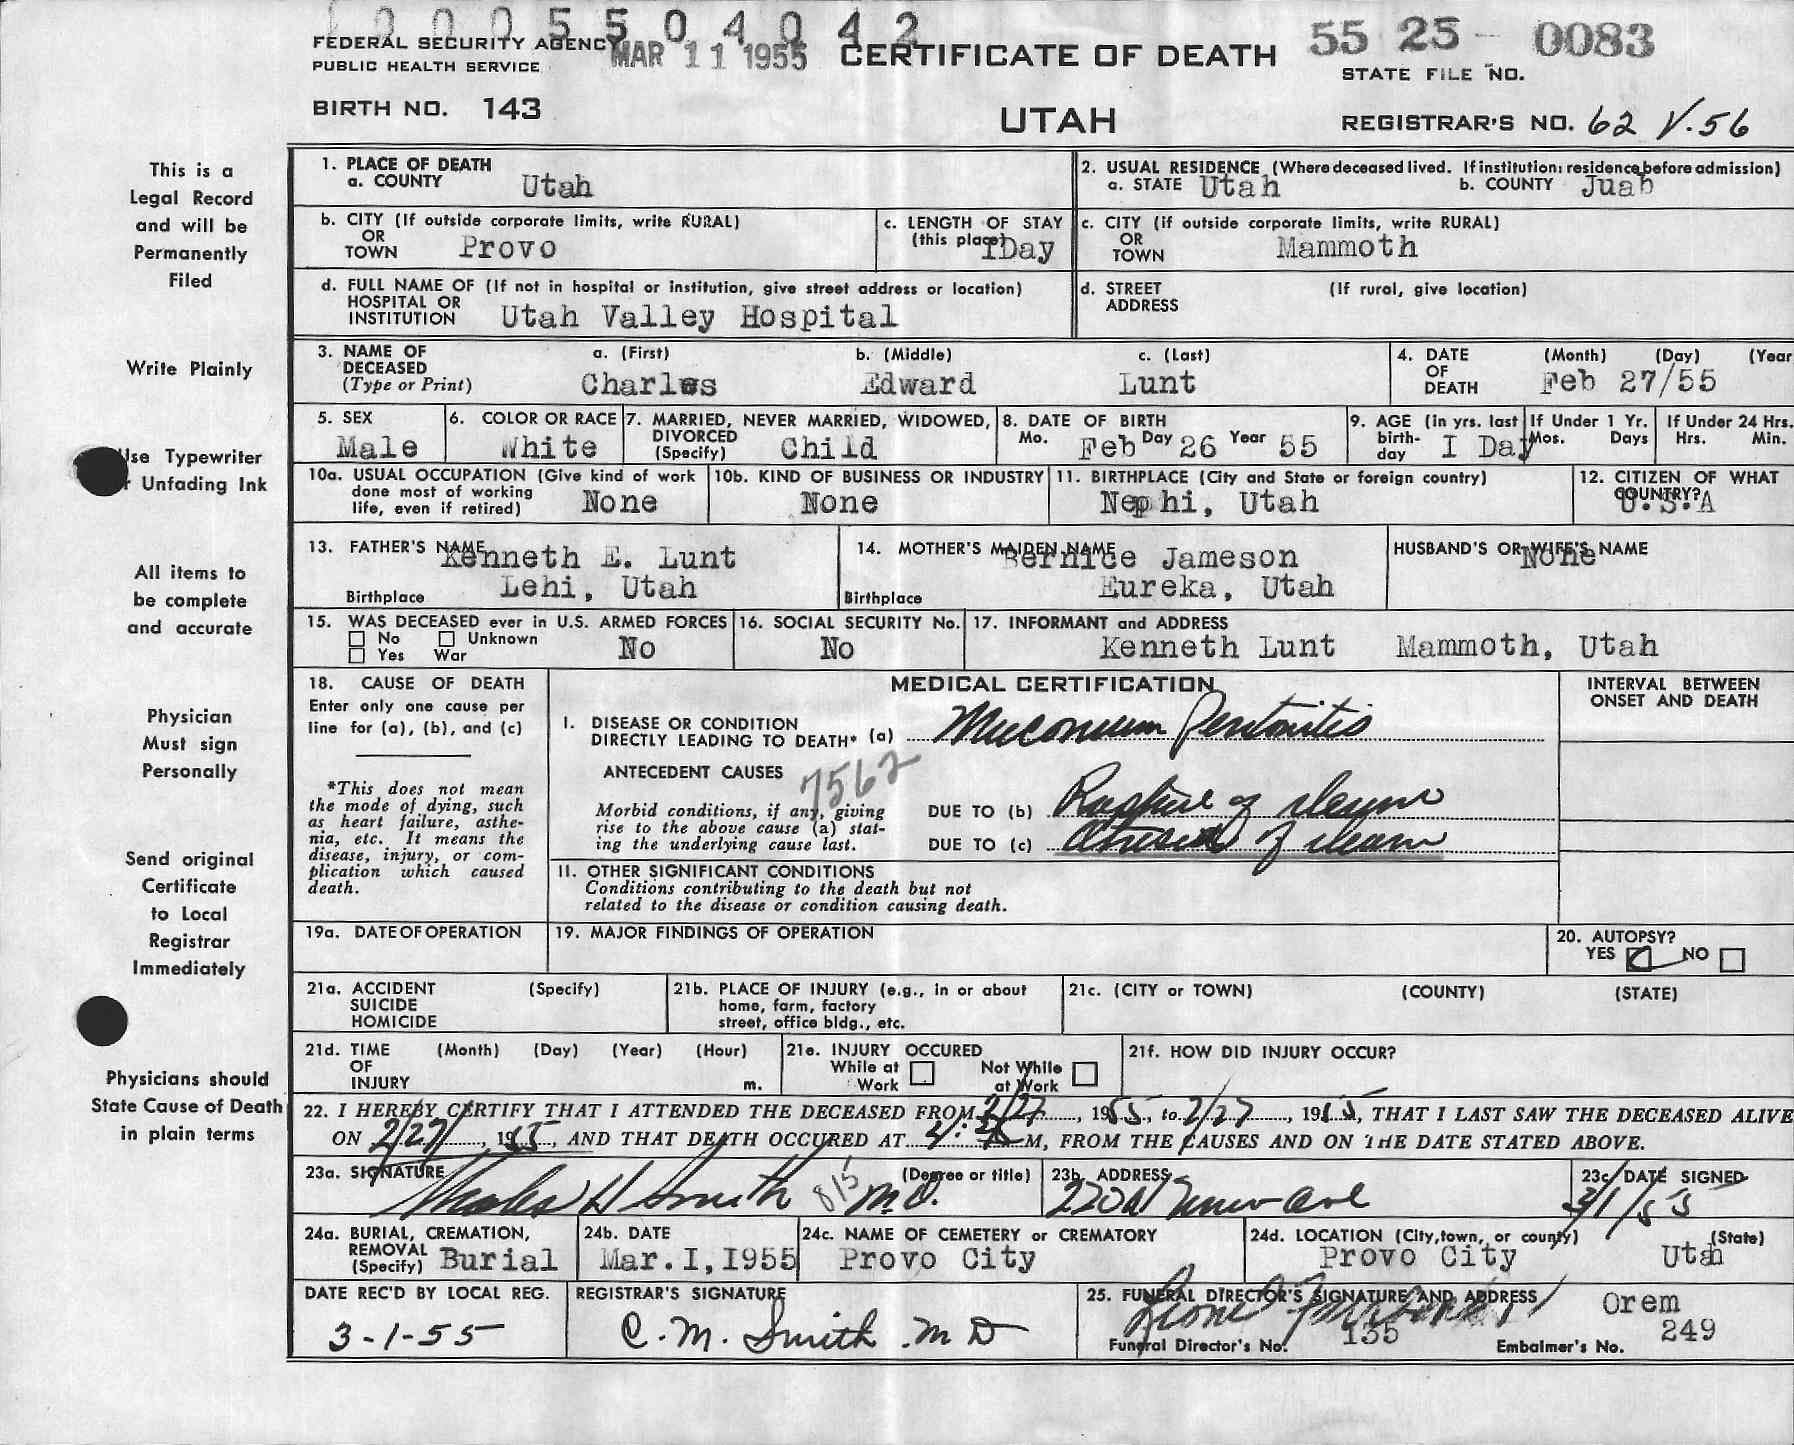 1000 5 5 0 4 0 4 2
FEDERAL SECURITY AGENCY MAR 11 1955 CERTIFICATE OF DEATH 55 25 - 0083
PUBLIC HEALTH SERVICE STATE FILE NO.
BIRTH NO. 143 UTAH REGISTRAR'S NO. 62 V.56
This is a Legal Record and will be Permanently Filed
1. PLACE OF DEATH
a. COUNTY Utah
2. USUAL RESIDENCE (Where deceased lived. If institution: residence before admission)
a. STATE Utah b. COUNTY Juab
b. CITY (If outside corporate limits, write RURAL)
OR TOWN Provo
c. LENGTH OF STAY (this place) 1Day
c. CITY (if outside corporate limits, write RURAL)
OR TOWN Mammoth
d. FULL NAME OF (If not in hospital or institution, give street address or location)
HOSPITAL OR INSTITUTION Utah Valley Hospital
d. STREET ADDRESS (If rural, give location)
Write Plainly
3. NAME OF DECEASED (Type or Print)
a. (First) b. (Middle) c. (Last)
Charles Edward Lunt
4. DATE OF DEATH (Month) (Day) (Year
Feb 27/55
Use Typewriter
r Unfading Ink
5. SEX Male
6. COLOR OR RACE White
7. MARRIED, NEVER MARRIED, WIDOWED, DIVORCED (Specify) Child
8. DATE OF BIRTH
Mo. Feb Day 26 Year 55
9. AGE (in yrs. last birth-day I Day
If Under 1 Yr. Mos. Days
If Under 24 Hrs. Hrs. Min.
10a. USUAL OCCUPATION (Give kind of work done most of working life, even if retired) None
10b. KIND OF BUSINESS OR INDUSTRY None
11. BIRTHPLACE (City and State or foreign country) Nephi, Utah
12. CITIZEN OF WHAT COUNTRY? U.S.A
All items to be complete and accurate
13. FATHER'S NAME Kenneth E. Lunt
Birthplace Lehi, Utah
14. MOTHER'S MAIDEN NAME Bernice Jameson
Birthplace Eureka, Utah
HUSBAND'S OR WIFE'S NAME None
15. WAS DECEASED ever in U.S. ARMED FORCES
No Unknown
Yes War
No
16. SOCIAL SECURITY No. No
17. INFORMANT and ADDRESS
Kenneth Lunt Mammoth, Utah
Physician Must sign Personally
18. CAUSE OF DEATH
Enter only one cause per line for (a), (b), and (c)
*This does not mean the mode of dying, such as heart failure, asthenia, etc. It means the disease, injury, or complication which caused death.
MEDICAL CERTIFICATION
INTERVAL BETWEEN ONSET AND DEATH
I. DISEASE OR CONDITION DIRECTLY LEADING TO DEATH* (a) Muconium Peritonitis
ANTECEDENT CAUSES 7562
Morbid conditions, if any, giving rise to the above cause (a) stating the underlying cause last.
DUE TO (b) Rupture of ileum
DUE TO (c) Atresia of ileum
II. OTHER SIGNIFICANT CONDITIONS
Conditions contributing to the death but not related to the disease or condition causing death.
Send original Certificate to Local Registrar Immediately
19a. DATE OF OPERATION
19. MAJOR FINDINGS OF OPERATION
20. AUTOPSY?
YES NO
21a. ACCIDENT SUICIDE HOMICIDE (Specify)
21b. PLACE OF INJURY (e.g., in or about home, farm, factory street, office bldg., etc.
21c. (CITY or TOWN) (COUNTY) (STATE)
21d. TIME OF INJURY (Month) (Day) (Year) (Hour) m.
21e. INJURY OCCURED
While at Work Not While at Work
21f. HOW DID INJURY OCCUR?
Physicians should State Cause of Death in plain terms
22. I HEREBY CERTIFY THAT I ATTENDED THE DECEASED FROM 2/27, 1955, to 2/27, 1955, THAT I LAST SAW THE DECEASED ALIVE
ON 2/27, 1955, AND THAT DEATH OCCURED AT M, FROM THE CAUSES AND ON THE DATE STATED ABOVE.
23a. SIGNATURE (Degree or title)
Charles H Smith 815 M.D.
23b. ADDRESS
Ave
23c. DATE SIGNED
3/1/55
24a. BURIAL, CREMATION, REMOVAL (Specify) Burial
24b. DATE Mar.I,I955
24c. NAME OF CEMETERY or CREMATORY Provo City
24d. LOCATION (City, town, or county) (State)
Provo City Utah
DATE REC'D BY LOCAL REG. 3-1-55
REGISTRAR'S SIGNATURE C. M. Smith M D
25. FUNERAL DIRECTOR'S SIGNATURE AND ADDRESS Orem
Funeral Director's No. 135 Embalmer's No. 249